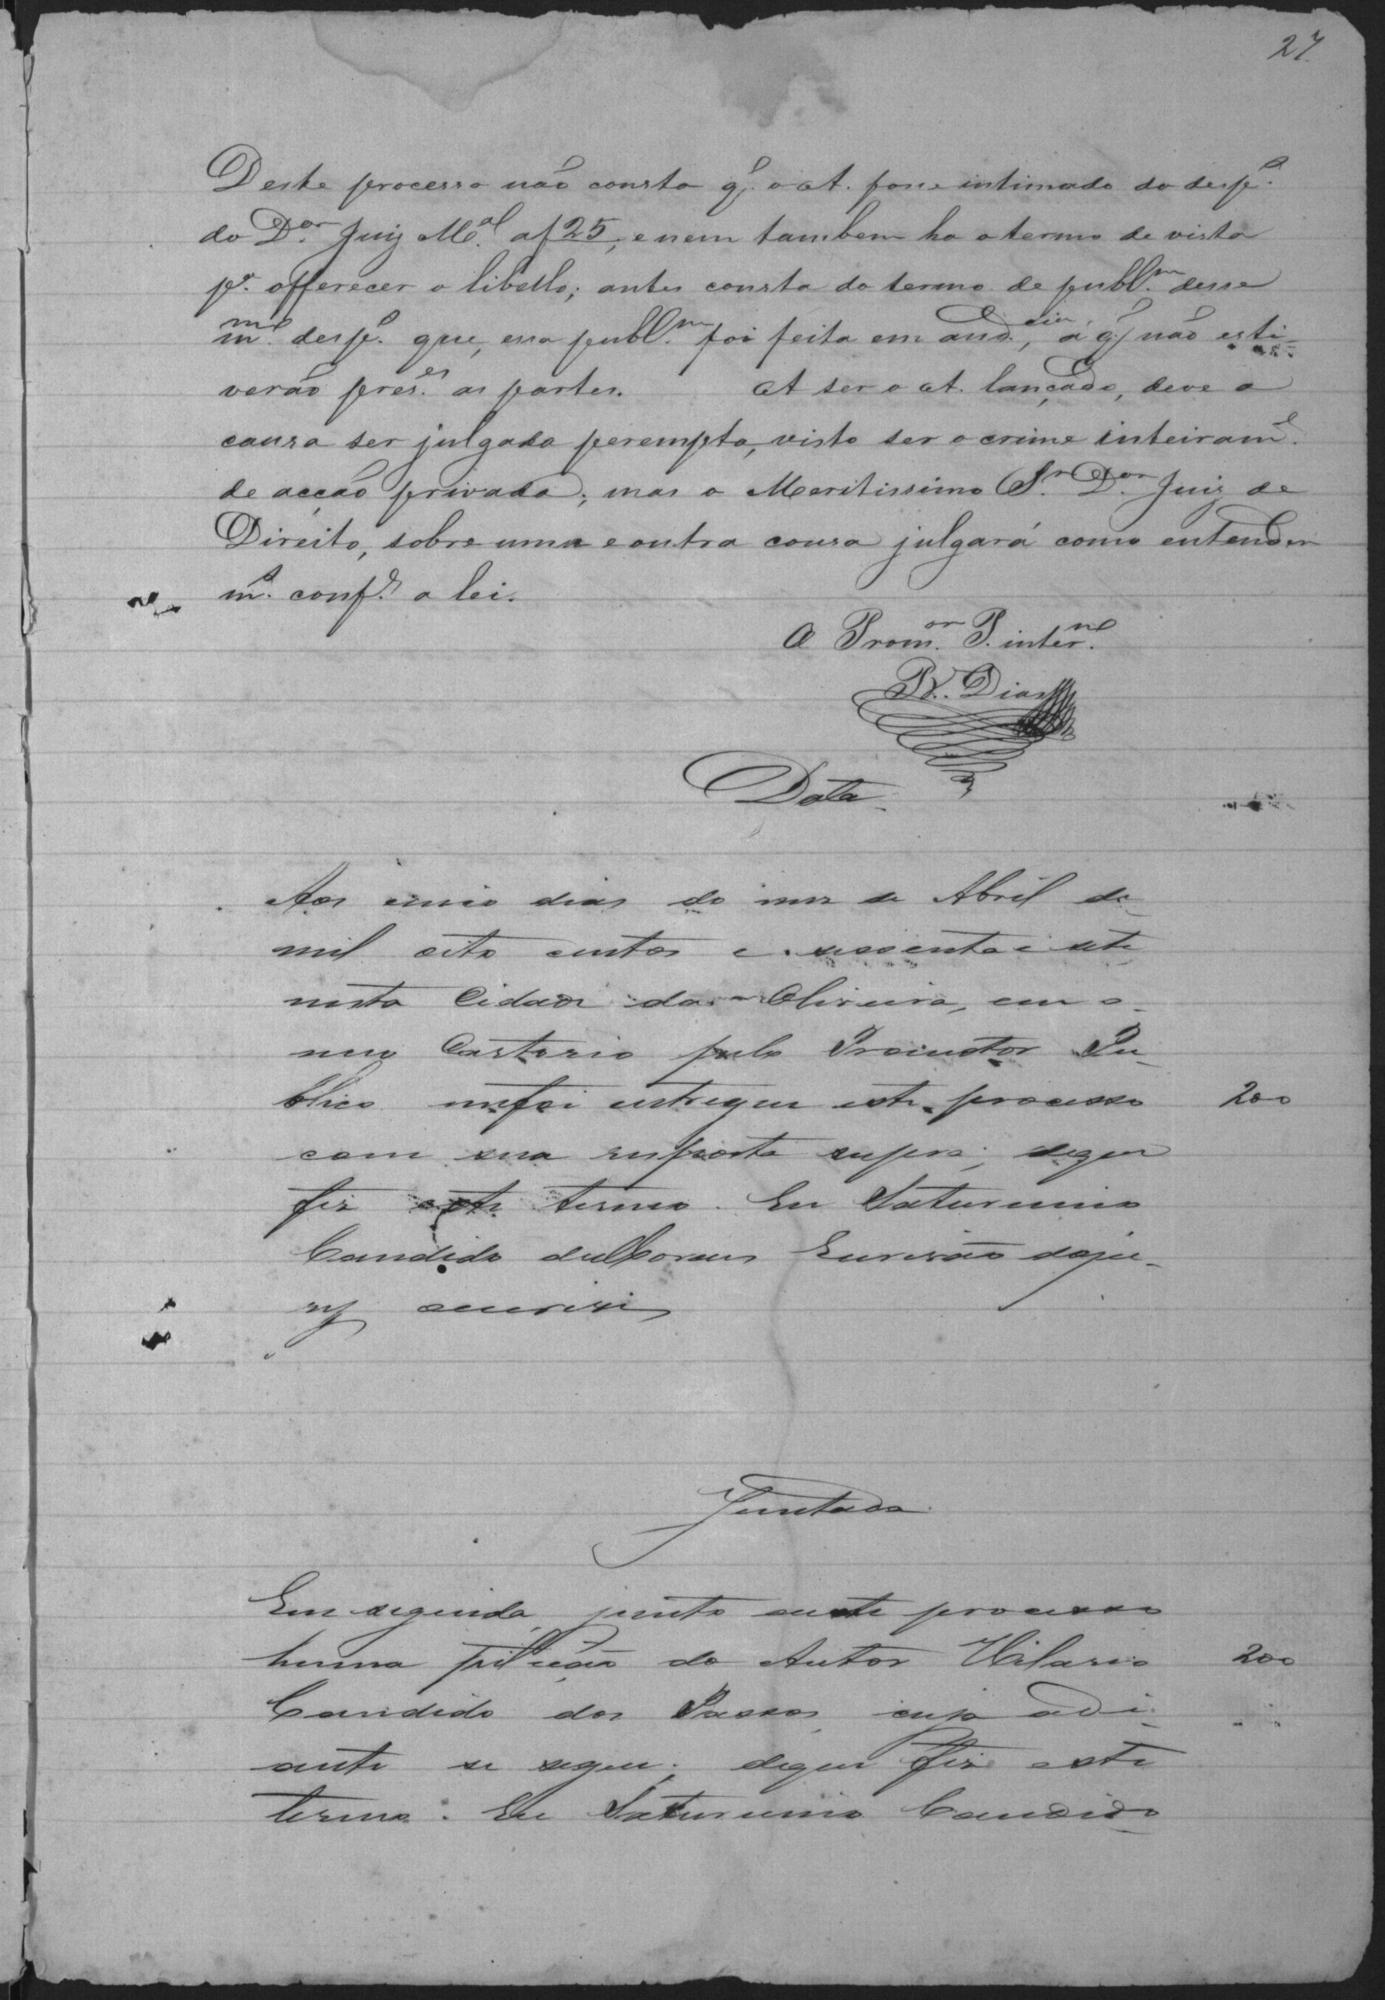 27
Deste processo não consta q̃. o A. fosse intimado do desp.º
do D.or Juiz M.al a f 25, e nem tambem ha o termo de vista
p.ª offerecer o libello; antes consta do termo de publ.m desse
m.mo desp.º que, essa publ.m foi feita em aud.cia, a q̃ não esti-
verão pres.es as partes. A ser o A. lançado, deve a
causa ser julgada perempta, visto ser o crime inteiram.e
de acção privada; mas o Meritissimo S.r D.or Juiz de
Direito, sobre uma e outra cousa julgará como entender
m.º conf.e a lei.
O Prom.or P. inter.no
Dias
Data
Aos cinco dias do mez de Abril de
mil oito centos e sessenta e sete
nesta Cidade da Oliveira, em o
meu Cartorio pelo Promotor Pu-
blico me foi entregue este processo 200
com sua resposta supra; de que
fiz este termo. Eu Saturnino
Candido de Moraes Escrivão do ju-
ry escrevi
Juntada
Em seguida junto a este processo
huma petição do Autor Hilario 200
Candido dos Passos cuja adi-
ante se segue; de que fiz este
termo. Eu Saturnino Candido